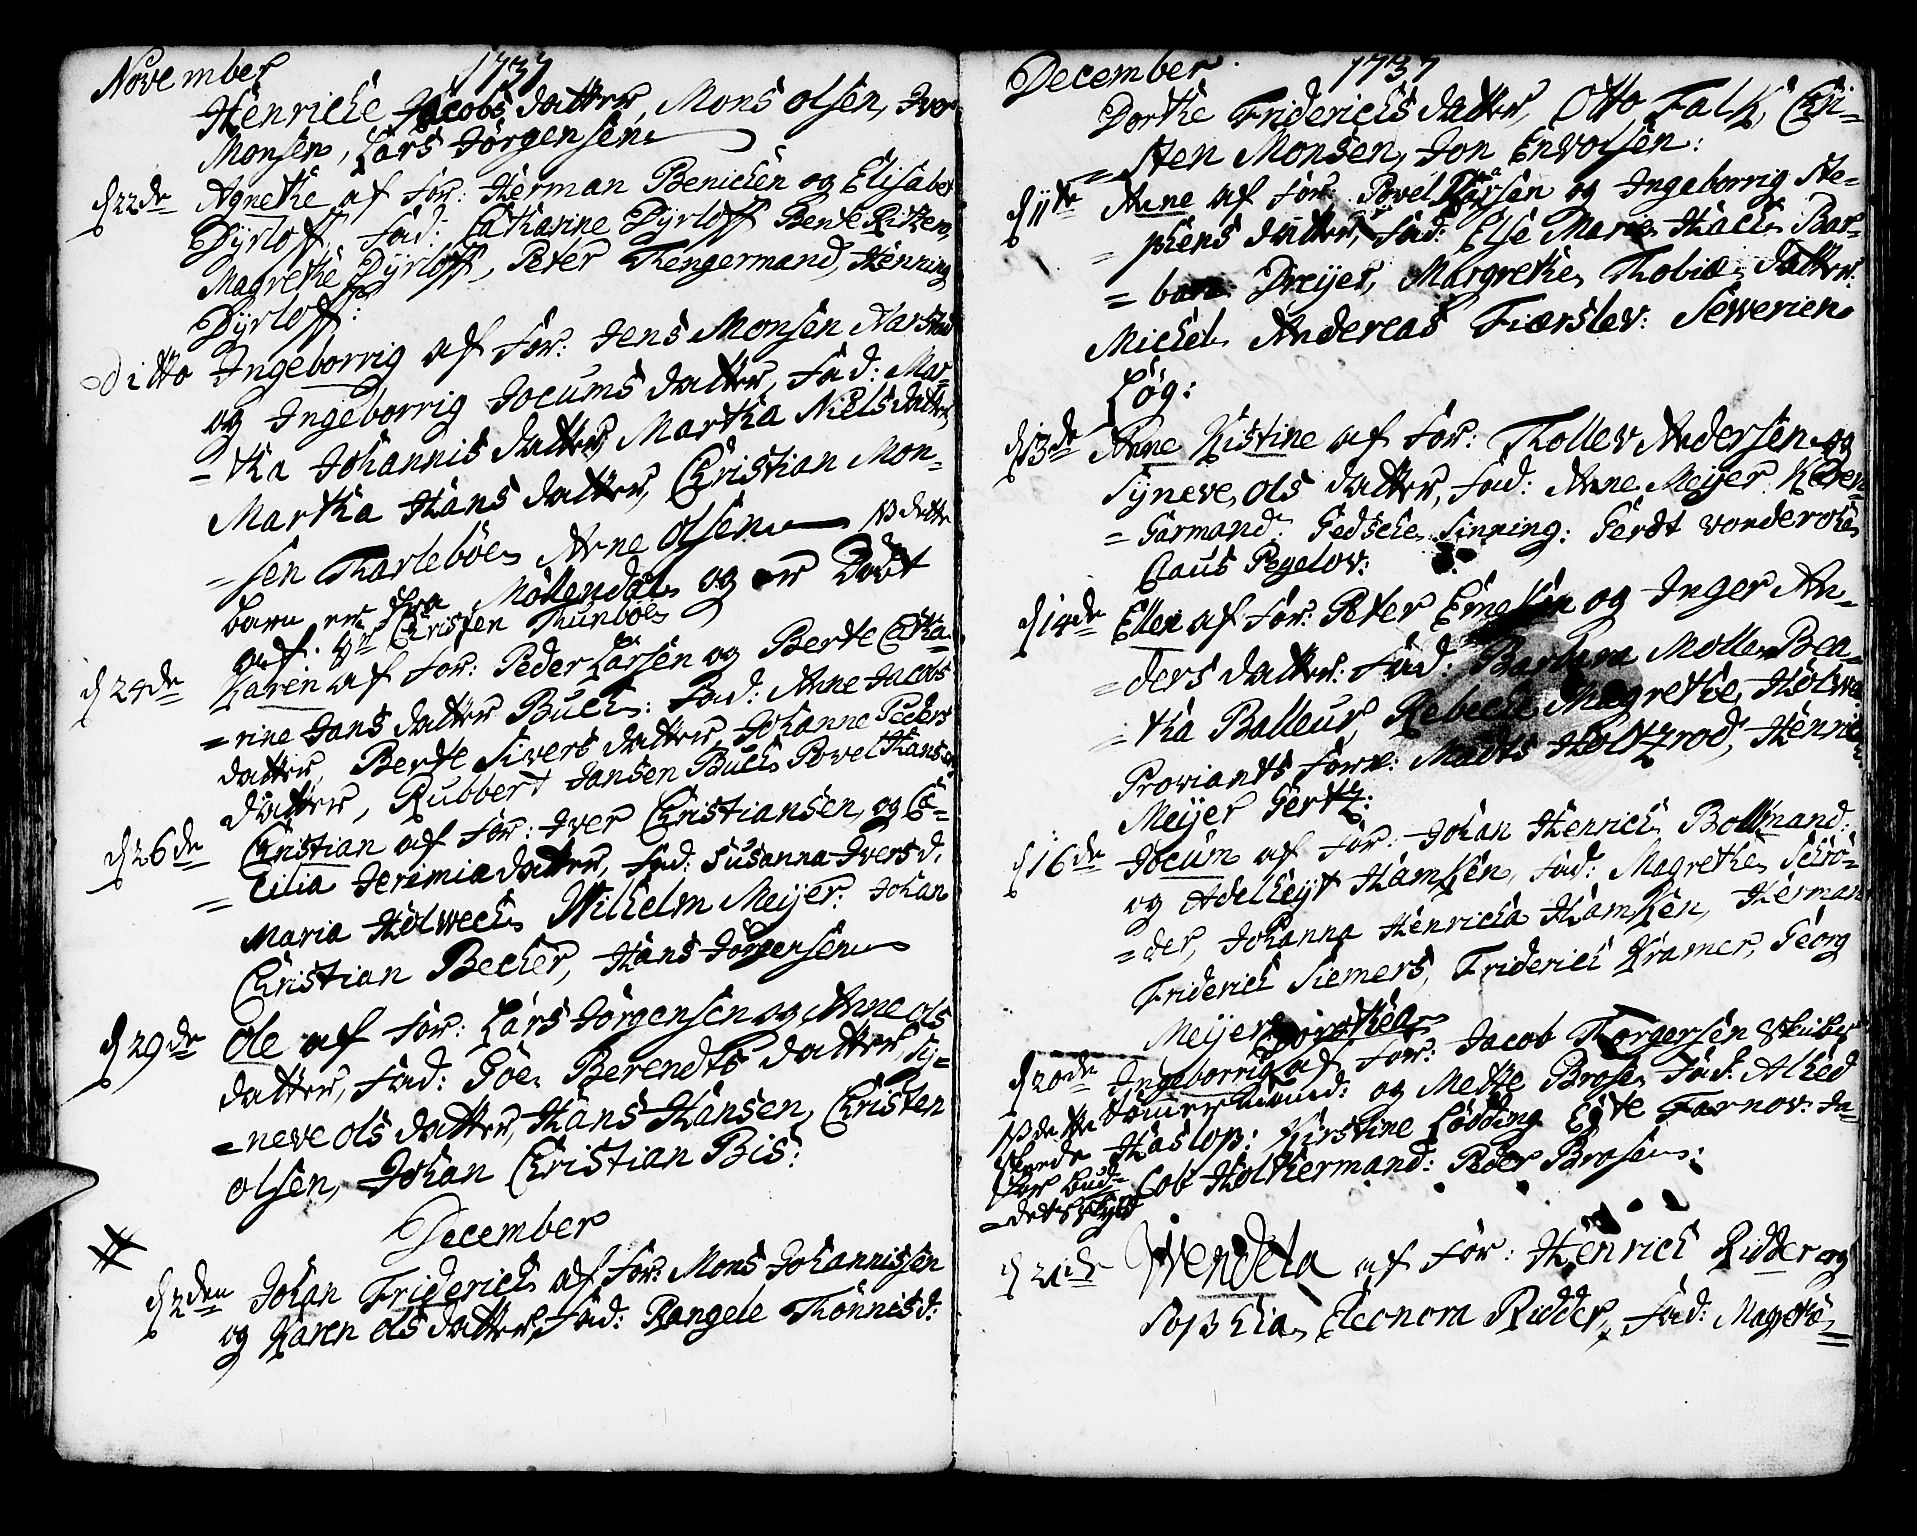 November 1737
Henriche Jacobs datter, Mons olsen, Iver
Monsen, Lars Jörgensen
d 22de Agnethe af For: Herman Benichen og Elisabet
Dyrloff, Fad: Catharine Dyrloff Bente Ritter,
Magrethe Dyrloff, Peter Tengermand, Henning
Dyrloff:
Ditto Ingeborrig af For: Jens Monsen Narstad
og Ingeborrig Jocums datter, Fad: Mar-
=tha Johannis datter, Martha Niels datter,
Martha Hans datter, Christian Mon-
=sen Tharleböe, Arne olsen NB dette
barn er fra Möllendal og er Döbt
af: Hr Christen Thunboe
d 24de Karen af For: Peder Larsen og Berte Catha-
=rine Jans datter Buch: Fad: Anne Jacobs
datter, Berte Sivers datter, Johanne Peders
datter, Rubbert Jansen Buch, Povel Hansen
d 26de Christian af For: Iver Christiansen, og Ce-
=cilia Jerimia datter, Fad: Susanna Ivers d.
Maria Holwech, Wilhelm Meijer: Johan
Christian Becher, Hans Jörgensen
d 29de Ole af For: Lars Jörgensen og Anne ols
datter, Fad: Göe, Berendts datter, Sy-
=neve ols datter, Hans Hansen, Christen
olsen, Johan Christian Bis:
December
d 2den Johan Friderich af For: Mons Johannissen
og Karen ols datter, Fad: Rangele Thönnis d:
December 1737
Dorthe Friderichs datter, Otto Falk, Chri-
=sten Monsen, Jon Envolsen:
d 11te Anne af For: Povel Larsen og Ingeborrig Ste-
=phens datter, Fad: Else Marie Hach, Bar-
=bara Dreyer, Margrethe Thobiæ datter:
Michel Andereas Fiærslev: Sewerien
Løg:
d 13de Anne Kistine af For: Thollev Andersen og
Syneve, ols datter, Fad: Anne Meyer Karen
=Garmand: Gedsche Sinning: Gerdt vonderohe,
Claus Pegelov:
d 14de Ellen af For: Peter Ernesten og Inger An-
=ders datter: Fad: Barbara Moller Bea-
=tha Balleur, Rebiche Magrethe Holwe,
Proviants Forv: Madts Holtzrod, Henrich
Meijer Gertz:
d 16de Jocum af For: Johan Henrich Bollmand:
og Adelheyt Hamken, Fad: Magrethe Schrö-
=der, Johanna Henricha Hamken, Herman
Friderich Siemers, Friderich Kramer, Georg
Meijer
d 20de Ingeborrig af For: Jacob Thorgersen
og Mette Brose, Fad: Alhed
NB dette Haslop: Kirstine Lödding Eyte Farnov: Ja-
=cob Holthermand: Peder Brose:
d 21de Wendela af For: Henrich Ridder og
Sophia, Eleonora Ridder, Fad: Magrete